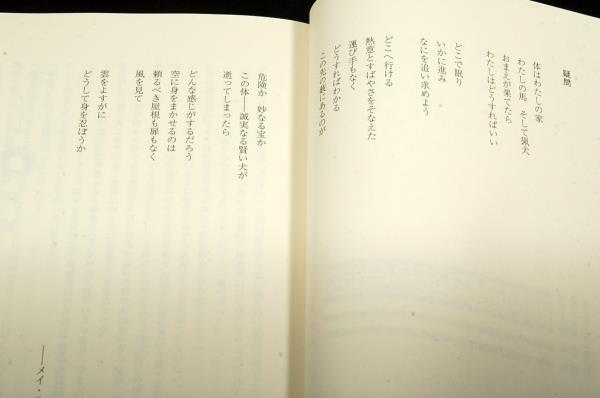 疑問
体はわたしの家
わたしの馬　そして猟犬
おまえが果てたら
わたしはどうすればいい
どこで眠り
いかに進み
なにを追い求めよう
どこへ行ける
熱意とすばやさをそなえた
運び手もなく
どうすればわかる
この先の藪にあるのが
危険か　妙なる宝か
この体――誠実なる賢い犬が
逝ってしまったら
どんな感じがするだろう
空に身をまかせるのは
頼るべき屋根も扉もなく
風を見て
雲をよすがに
どうして身を忍ぼうか
――メイ・